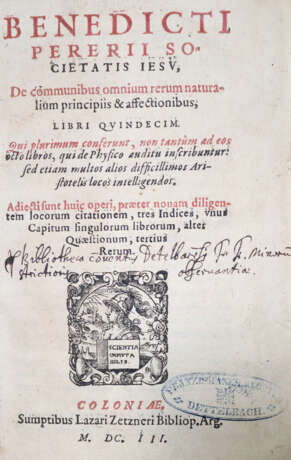 BENEDICTI
PERERII SO-
CIETATIS IESV,
De communibus omnium rerum natura-
lium principiis & affectionibus,
LIBRI QVINDECIM.
Qui plurimum conferunt, non tantùm ad eos
octo libros, qui de Physico auditu inscribuntur:
sed etiam multos alios difficillimos Ari-
stotelis locos intelligendos.
Adiecti sunt huic operi, præter nouam diligen-
tem locorum citationem, tres Indices, vnus
Capitum singulorum librorum, alter
Quæstionum, tertius
Rerum.
Bibliotheca Conventus Dettelbac. Fr. Fr. Minorum
strictioris observantiae.
SCIENTIA
IMMVTA
BILIS.
DETTELBACH
COLONIAE,
Sumptibus Lazari Zetzneri Bibliop. Arg.
M. DC. III.